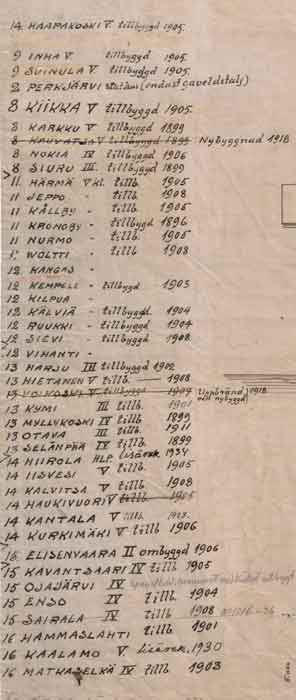 14 HAAPAKOSKI V. tillbyggd 1905.
9 INHA V tillbyggd 1905.
9 SUINULA V tillbyggd 1905.
2 PERKJÄRVI station (endast gaveldetalj)
8 KIIKKA V tillbyggd 1905.
8 KARKKU V tillbyggd 1899
8 KAUVATSA V tillbyggd 1899 Nybyggnad 1918
8 NOKIA IV tillbyggd 1906
8 SIURU III tillbyggd 1899
11 HÄRMÄ V kl. tillb. 1905
11 JEPPO - tillb. 1908
11 KÅLLBY - tillb. 1905
11 KRONOBY - tillbygd 1896
11 NURMO - tillb. 1905
11 VOLTTI - tillb. 1908
12 KANGAS -
12 KEMPELE - tillbygd 1905
12 KILPUA -
12 KÄLVIÄ - tillbyggd. 1904
12 RUUKKI - tillbygd 1904
12 SIEVI - tillbyggd 1908.
12 VIHANTI -
13 HARJU III tillbyggd 1902
13 HIETANEN V tillb. 1908
13 VOIKOSKI V tillbyggd 1909 1918
13 KYMI III tillb. 1901
13 MYLLYKOSKI IV tillb 1899
13 OTAVA III tillb. 1911
13 SELÄNPÄÄ IV tillb 1899
14 HIIROLA HLP. 1934
14 IISVESI V tillb. 1905
14 KALVITSA V tillb 1908
14 HAUKIVUORI V tillb 1905
14 KANTALA V tillb
14 KURKIMÄKI V tillb 1906
15 ELISENVAARA II ombyggd 1906
15 KAVANTSAARI IV tillb. 1905
15 OJAJÄRVI IV
15 ENSO IV tillb. 1904
15 SAIRALA IV tillb 1908
16 HAMMASLAHTI tillb 1901
16 KAALAMO V 1930
16 MATKASELKÄ IV tillb 1903